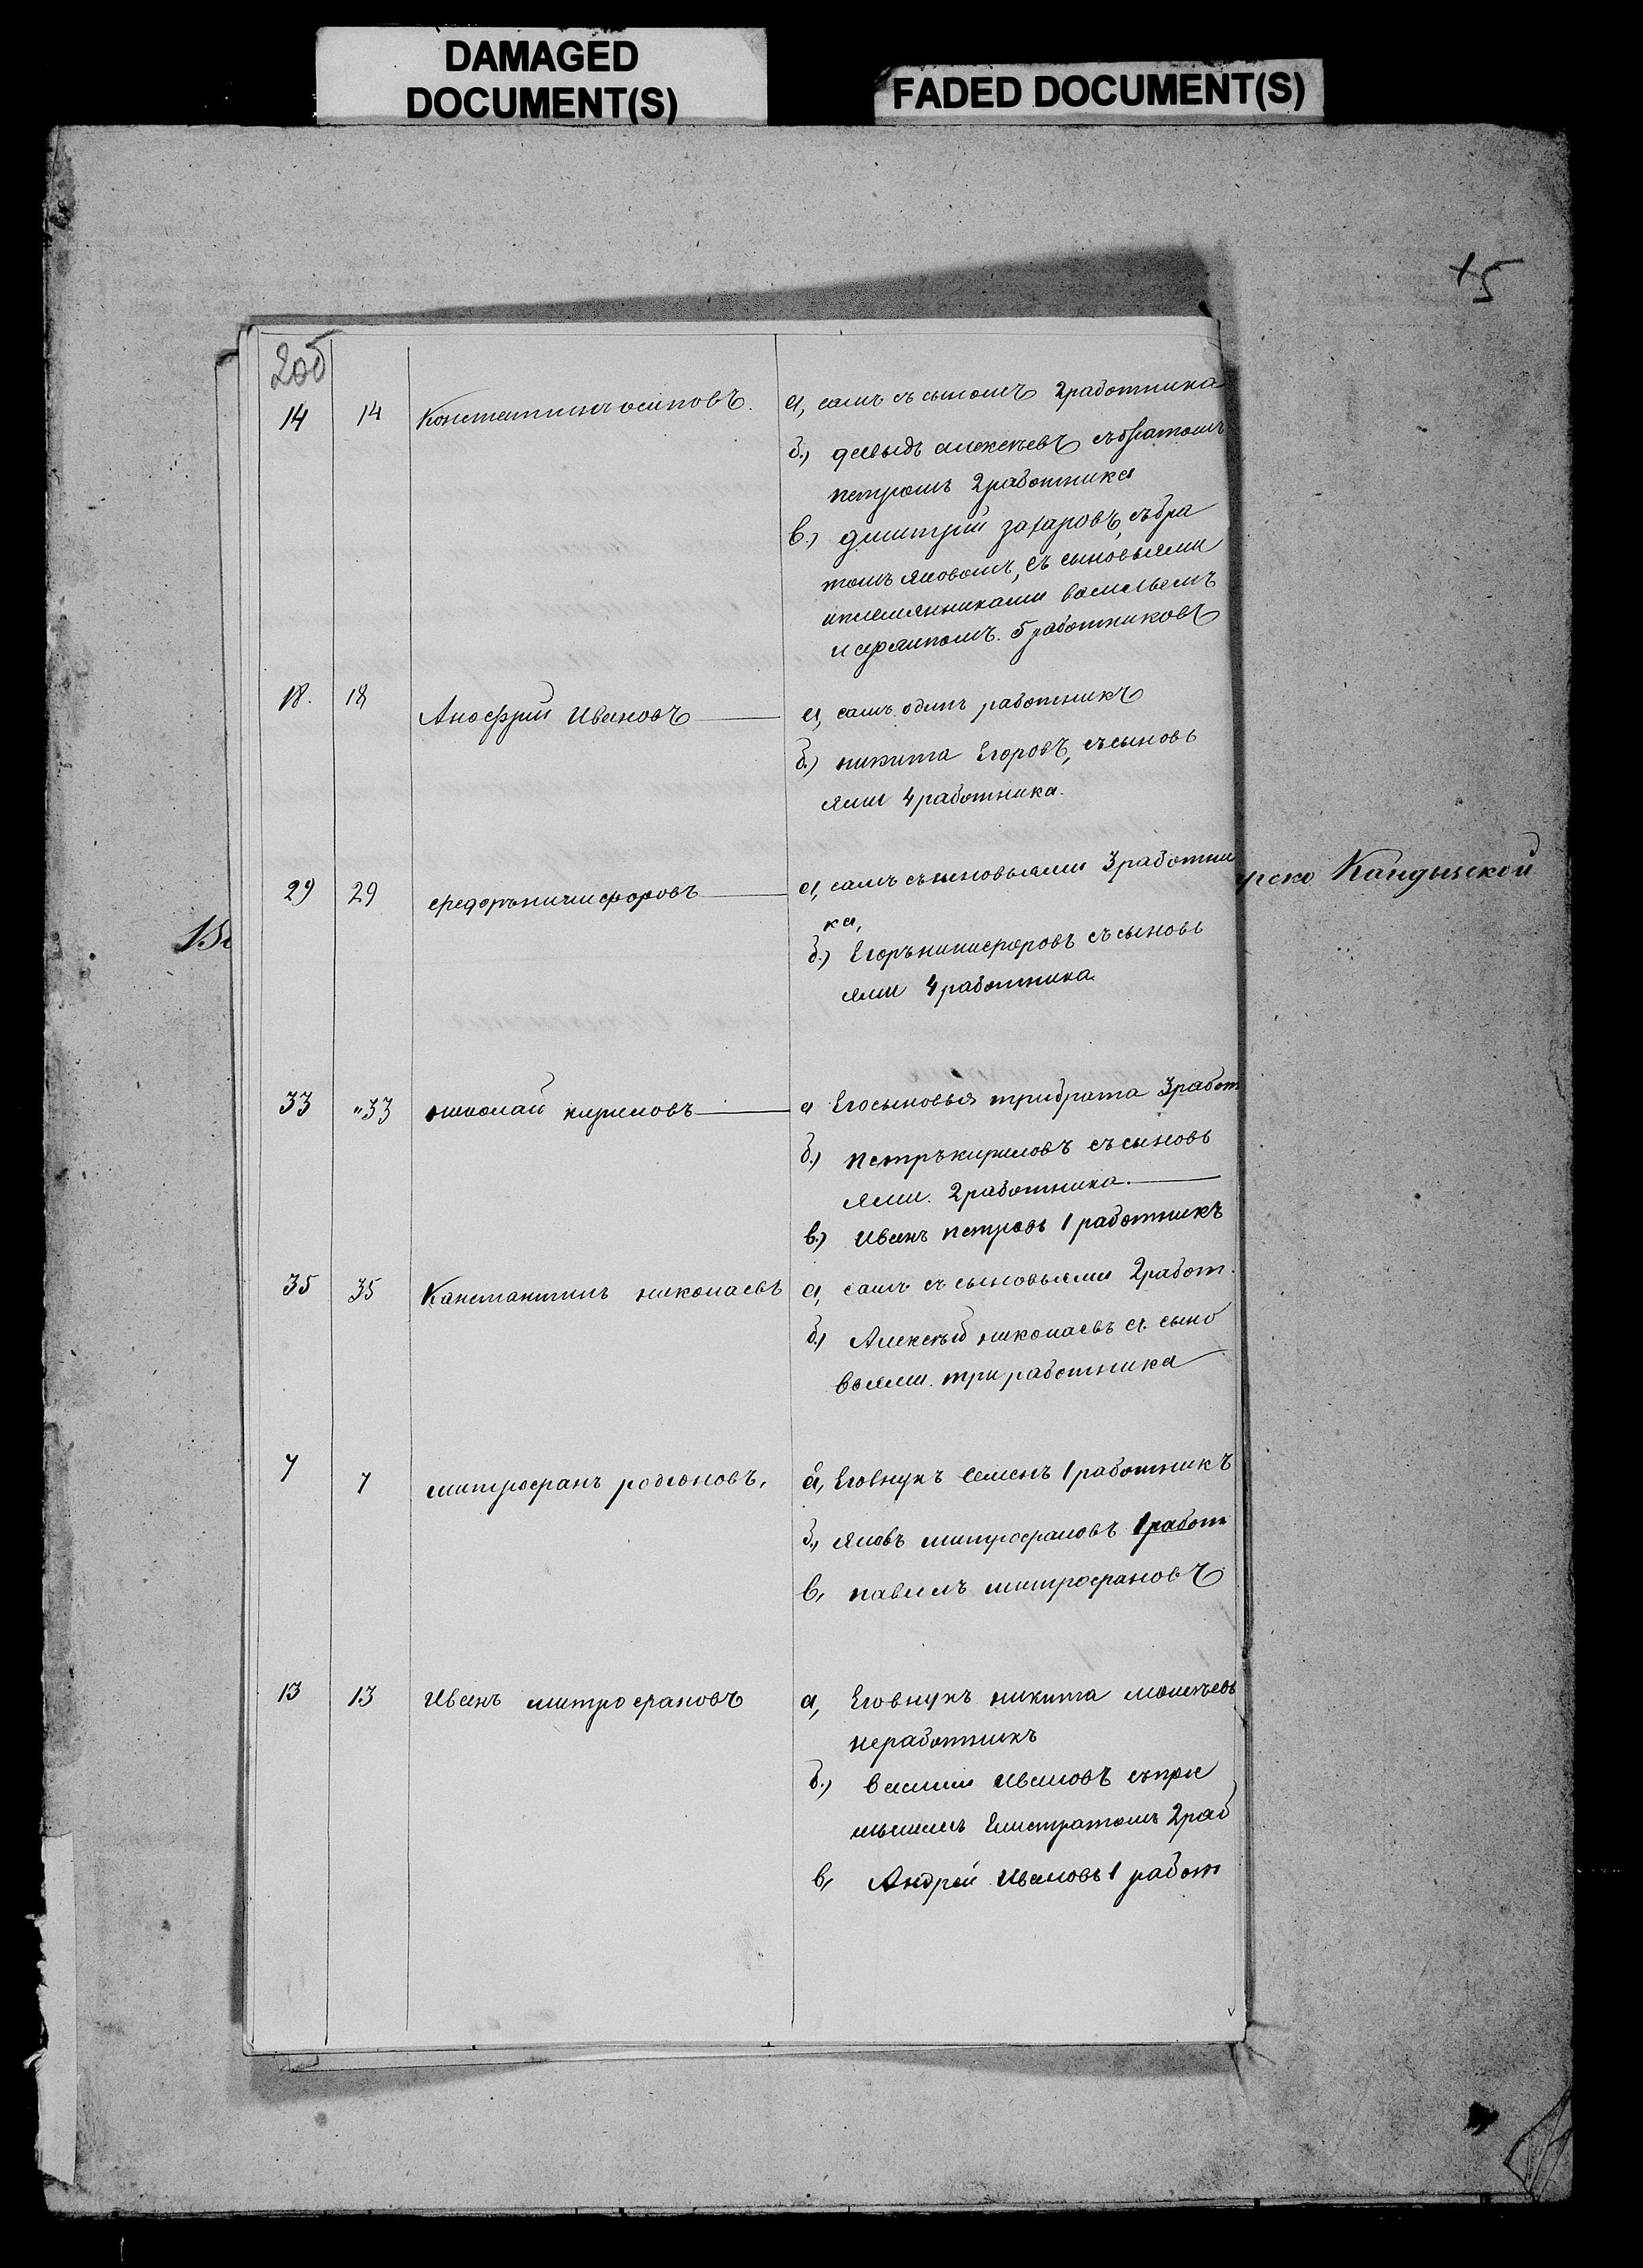 DAMAGED
DOCUMENT(S)
FADED DOCUMENT(S)
+5
20б
14 14 Константинъ осиповъ. а, самъ съ сыномъ 2 работника
б.) давыдъ алексѣевъ съ братомъ
петромъ 2 работника
в.) дмитрiй захаровъ, съ бра
томъ яковомъ, съ сыновьями
и племянниками васильемъ
5 работниковъ
18. 18 Аносфрiй Ивановъ а, самъ одинъ работникъ
б.) никита Егоровъ, съ сыновь
ями 4 работника.
29 29 федоръ никифоровъ а, самъ съ сыновьями 3 работни
ка,
б.) Егоръ никифоровъ съ сыновь
ями 4 работника
33 "33 николай кириловъ а Его сыновья три брата 3 работ
б.) петръ кириловъ съ сыновь
ями. 2 работника.
в.) Иванъ петровъ 1 работникъ
35 35 Канстантинъ николаевъ а, самъ съ сыновьями 2 работ.
б.) Алексѣй николаевъ съ сыно
вьями. три работника
7 7 митрофанъ родiоновъ, а, Его внукъ Семенъ 1 работникъ
б., яковъ митрофановъ 1 работ
в, павелъ митрофановъ
13 13 Иванъ митрофановъ а, Его внукъ никита моисѣевъ
не работникъ
б.) василiй Ивановъ съ прие
мышемъ Елистратомъ 2 раб
в, Андрей Ивановъ 1 работ
Кандызской